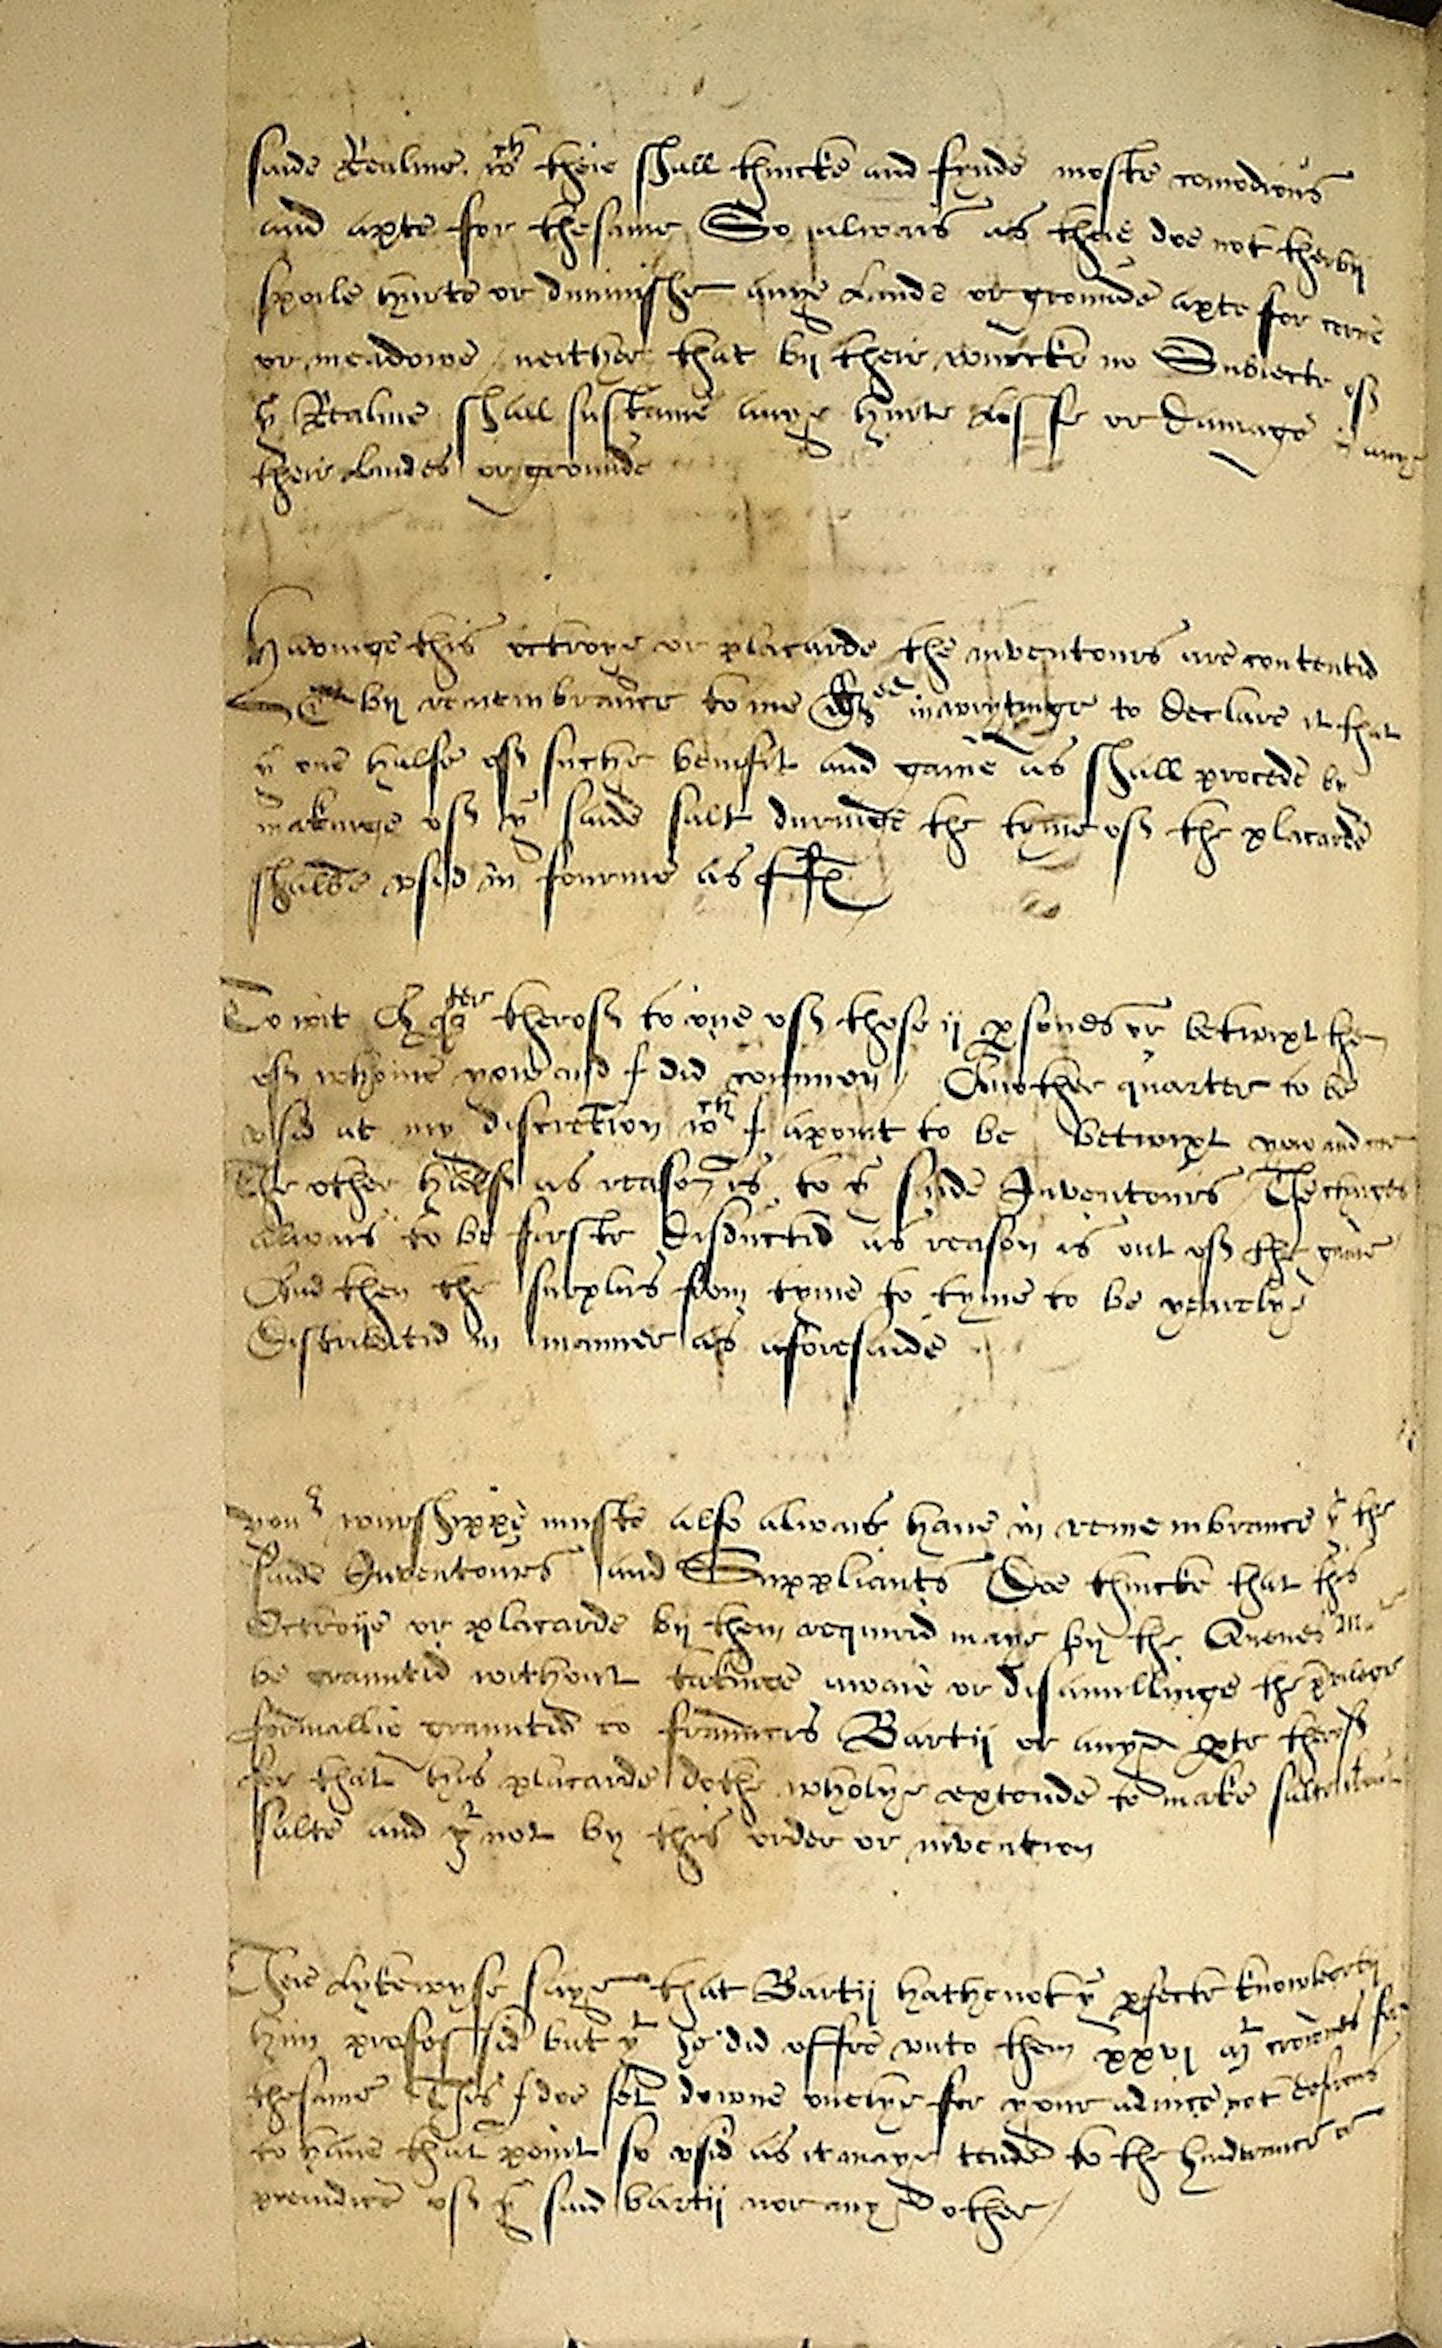 saide Realme. wch theie shall thincke and fynde moste comodious
and apte for thesame So alwais as theie doe not therbij
spoile hurte or diminishe anye Lande or grounde apte for corne
or meadowe neither that bij their woorcke no Subiecte off
ye Realme shall sustaine anye hurte Losse or Damage in anye
their Landes or grounde
Havinge this octroye or placarde the inventours are contentid
bij remembrance to me in wrytinge to declare it that
ye one halfe off suche benifit and gaine as shall procede by
makinge off ye saide salt duringe the tyme off the placarde
shalbe usid in fourme as
To wit theroff to one off those ij psones or betwixt the
off whome yow and I did common / Another quarter to be
usid at my discretion wch I apoint to be betwixt yow and me
The other halff as reason is to ye saide Inventours / The charges
alwais to be firste disductid as reason is out off the gaine
And then the surplus from tyme to tyme to be yearlye
Distributid in manner as aforesaide
your wurshippe muste also alwais have in remembrance yt the
saide Inventours and Suppliants Doe thincke that this
Octroije or placarde bij them requirid maye bij the Quenes Mte
be grauntid without takinge awaie or disanullinge the
formallie grauntid to Frauncis Bartij or anye pte theroff
for that this placarde dothe wholye extende to make salte
salte and yt not by this order or invention
Theie Lykewyse saye that Bartij hathe not ye pfecte knowledge bij
him professid but yt he did offre unto them xxvi Mt crownes for
thesame This I doe set downe onelye for your advice not desirous
to have that point so usid as it maye tende to the hindrance or
preiudice off ye said bartij nor any other /